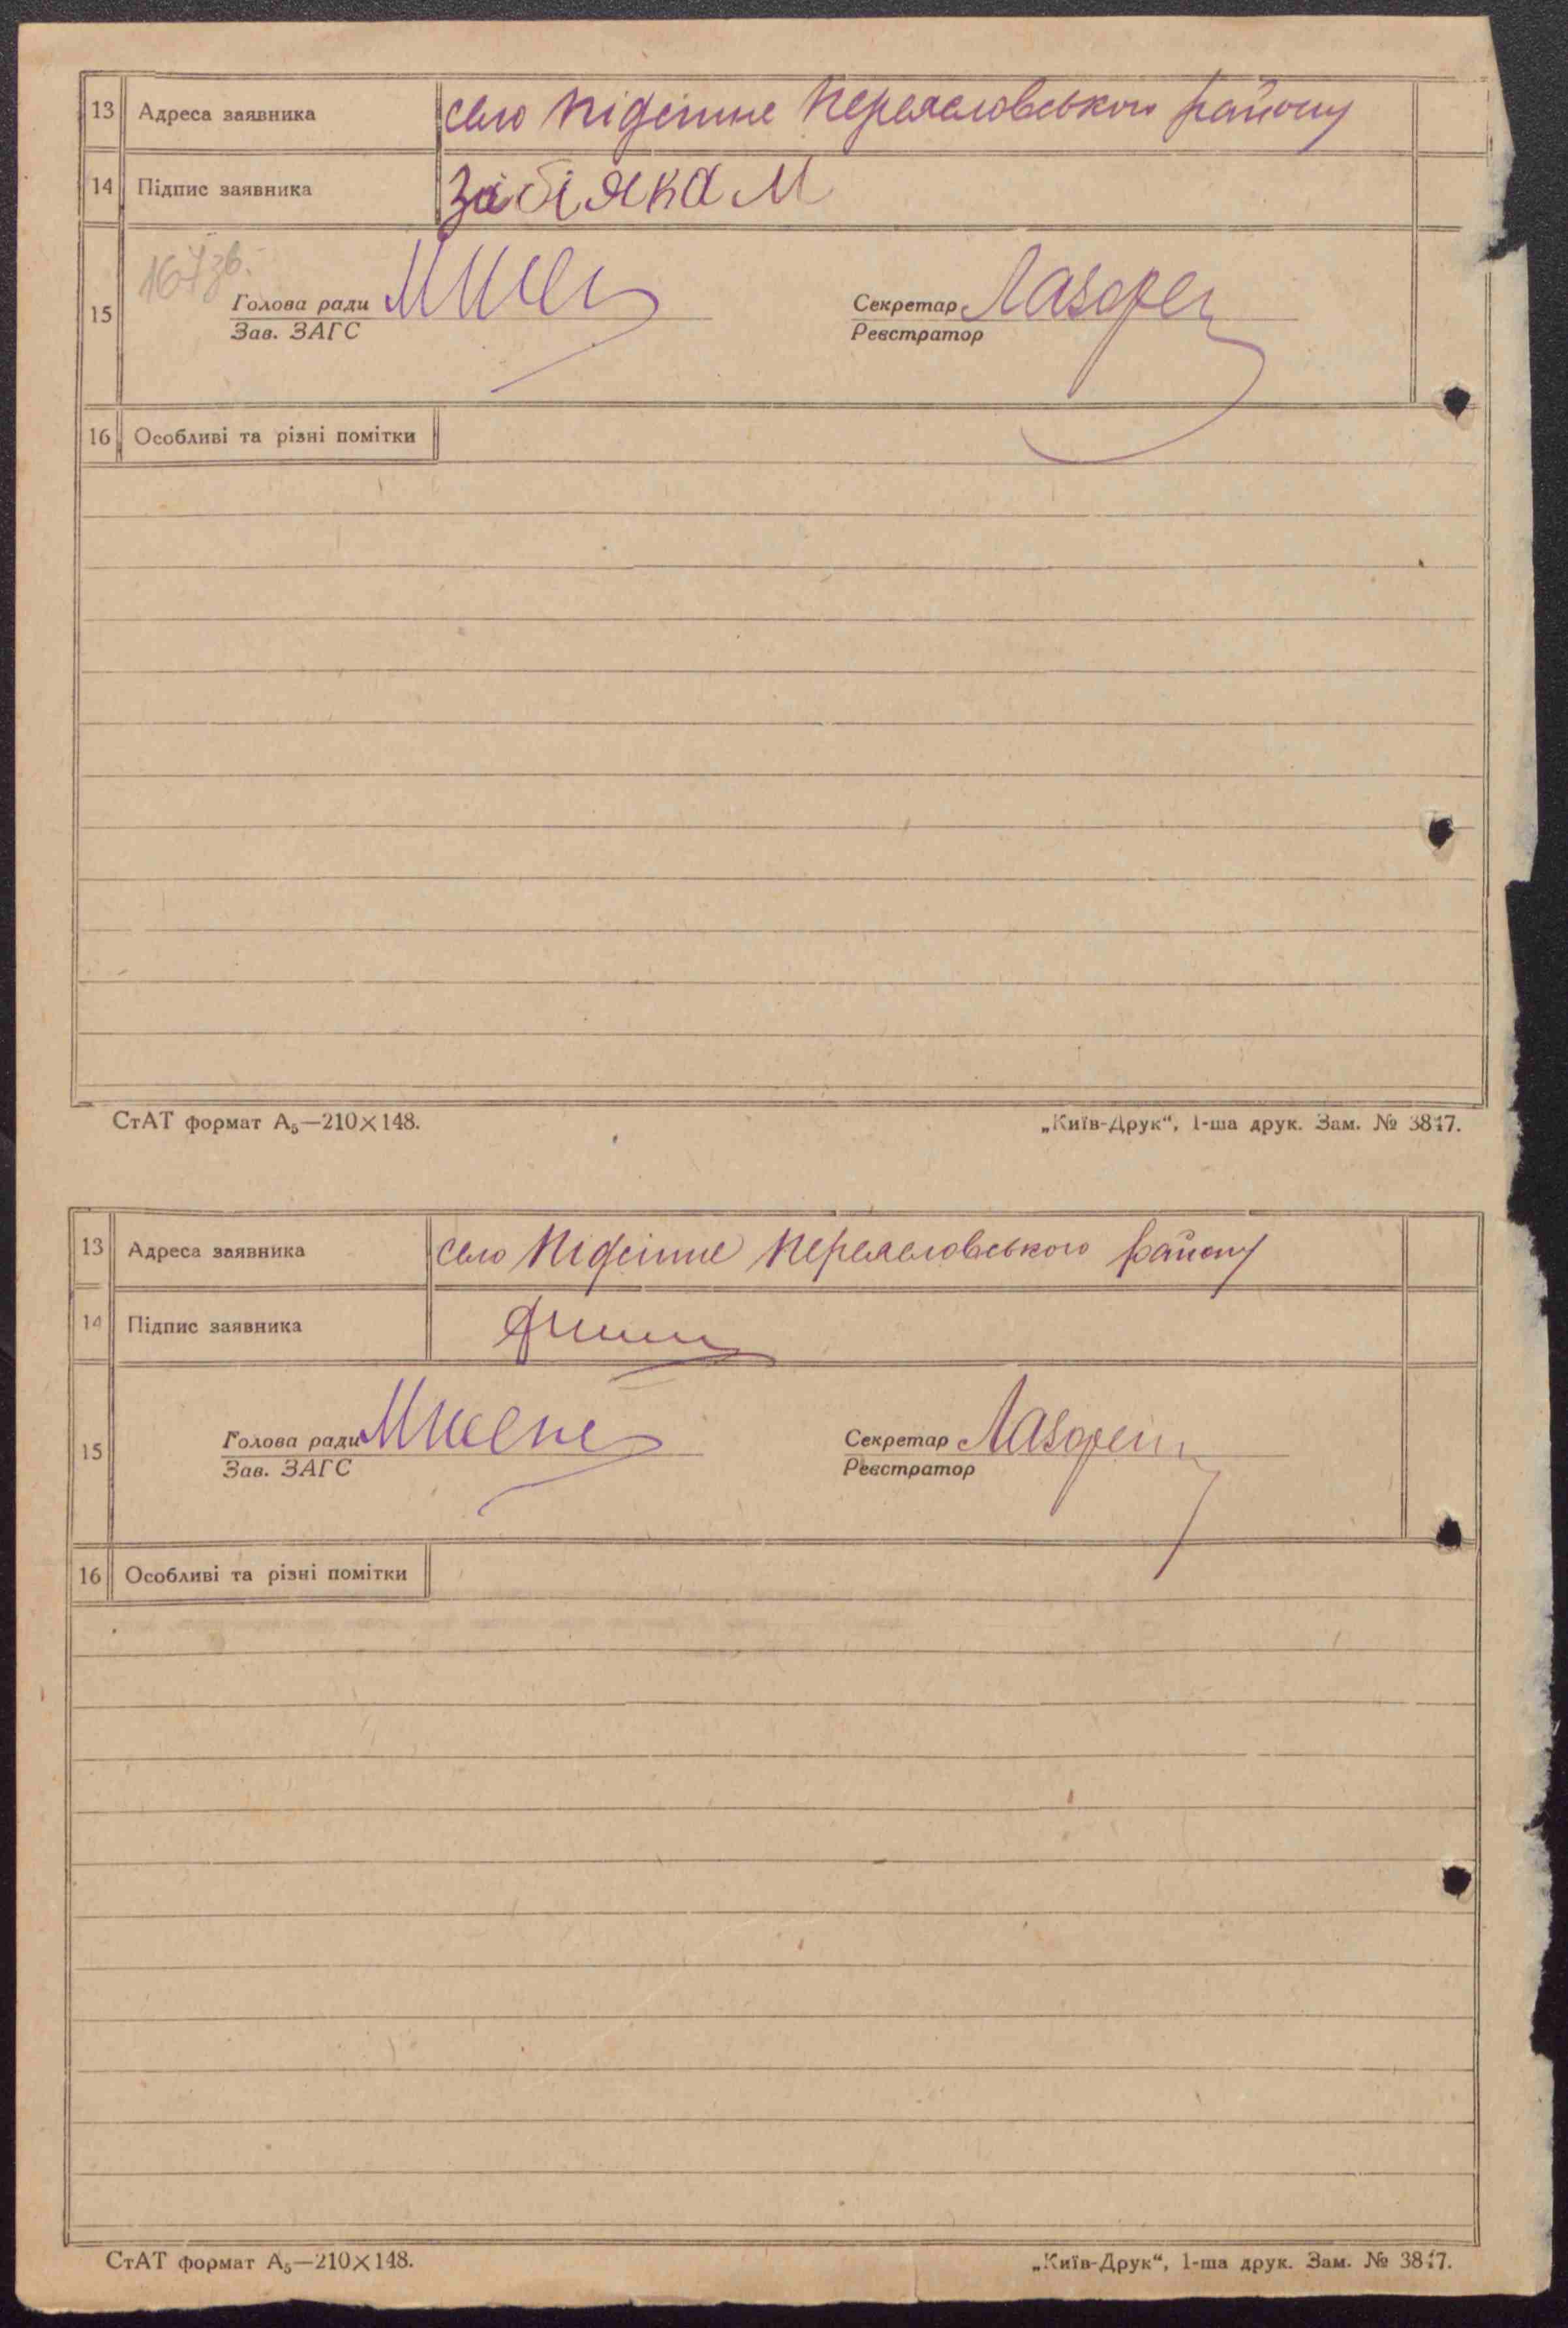 13 Адреса заявника село Підсінне Переяславського району
14 Підпис заявника Забіяка М
167зв.
15 Голова ради Секретар
Зав. ЗАГС Реєстратор
16 Особливі та різні помітки
СтАТ формат А₅—210×148. „Київ-Друк“, 1-ша друк. Зам. № 3817.
13 Адреса заявника село Підсінне Переяславського району
14 Підпис заявника
15 Голова ради Секретар
Зав. ЗАГС Реєстратор
16 Особливі та різні помітки
СтАТ формат А₅—210×148. „Київ-Друк“, 1-ша друк. Зам. № 3817.